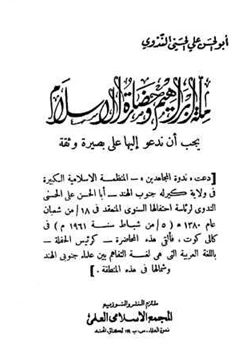 أبو الحسن علي الحسني الندوي
ملة إبراهيم وحضارة الإسلام
يجب أن ندعو إليها على بصيرة وثقة
[ دعت « ندوة المجاهدين » — المنظمة الاسلامية الكبيرة
في ولاية كيراله جنوب الهند — أبا الحسن علي الحسني
الندوي لرئاسة احتفالها السنوي المنعقد في ١٨/ من شعبان
عام ١٣٨٠ هـ ( ٥/ من شباط سنة ١٩٦١ م ) في
كالي كوت ، فألقى هذه المحاضرة — كرئيس الحفلة —
باللغة العربية التي هي لغة التفاهم بين علماء جنوبي الهند
وشمالها في هذه المنطقة . ]
ملتزم النشر والتوزيع
المجمع الإسلامي العلمي
ندوة العلماء ـ ص ـ ب ١١٩ لكهنؤ الهند